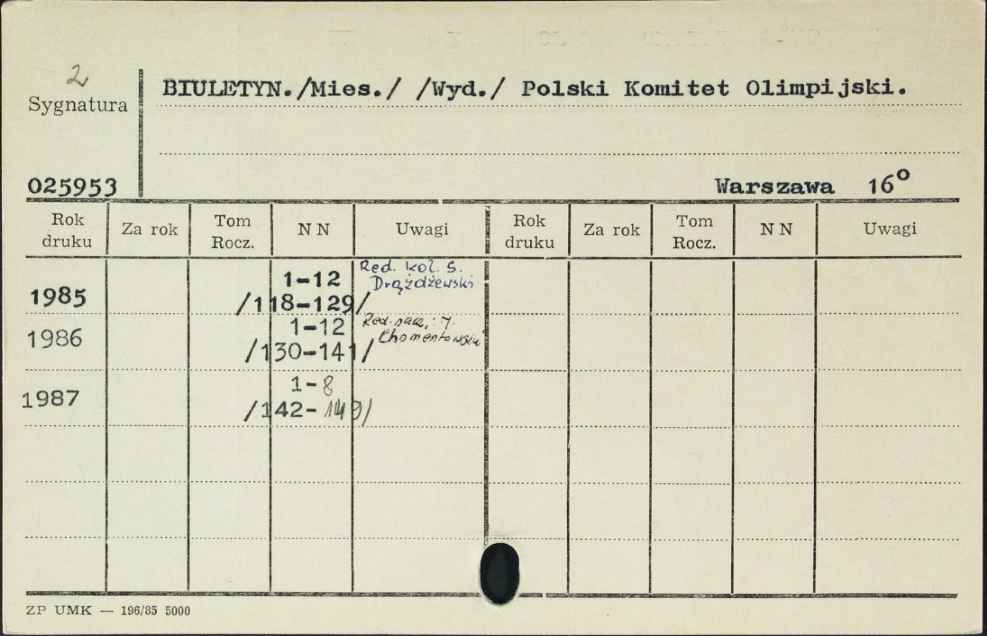 2
Sygnatura
BIULETYN./Mies./ /Wyd./ Polski Komitet Olimpijski.
025953
Warszawa 16°
Rok druku Za rok Tom Rocz. N N Uwagi Rok druku Za rok Tom Rocz. N N Uwagi
1-12 Red. kol. S.
1985 Drążdżewski
/118-129/
1-12 Red. nacz.: J.
1986 Chomentowski
/130-141/
1-8
1987
/142-149/
ZP UMK — 196/85 5000